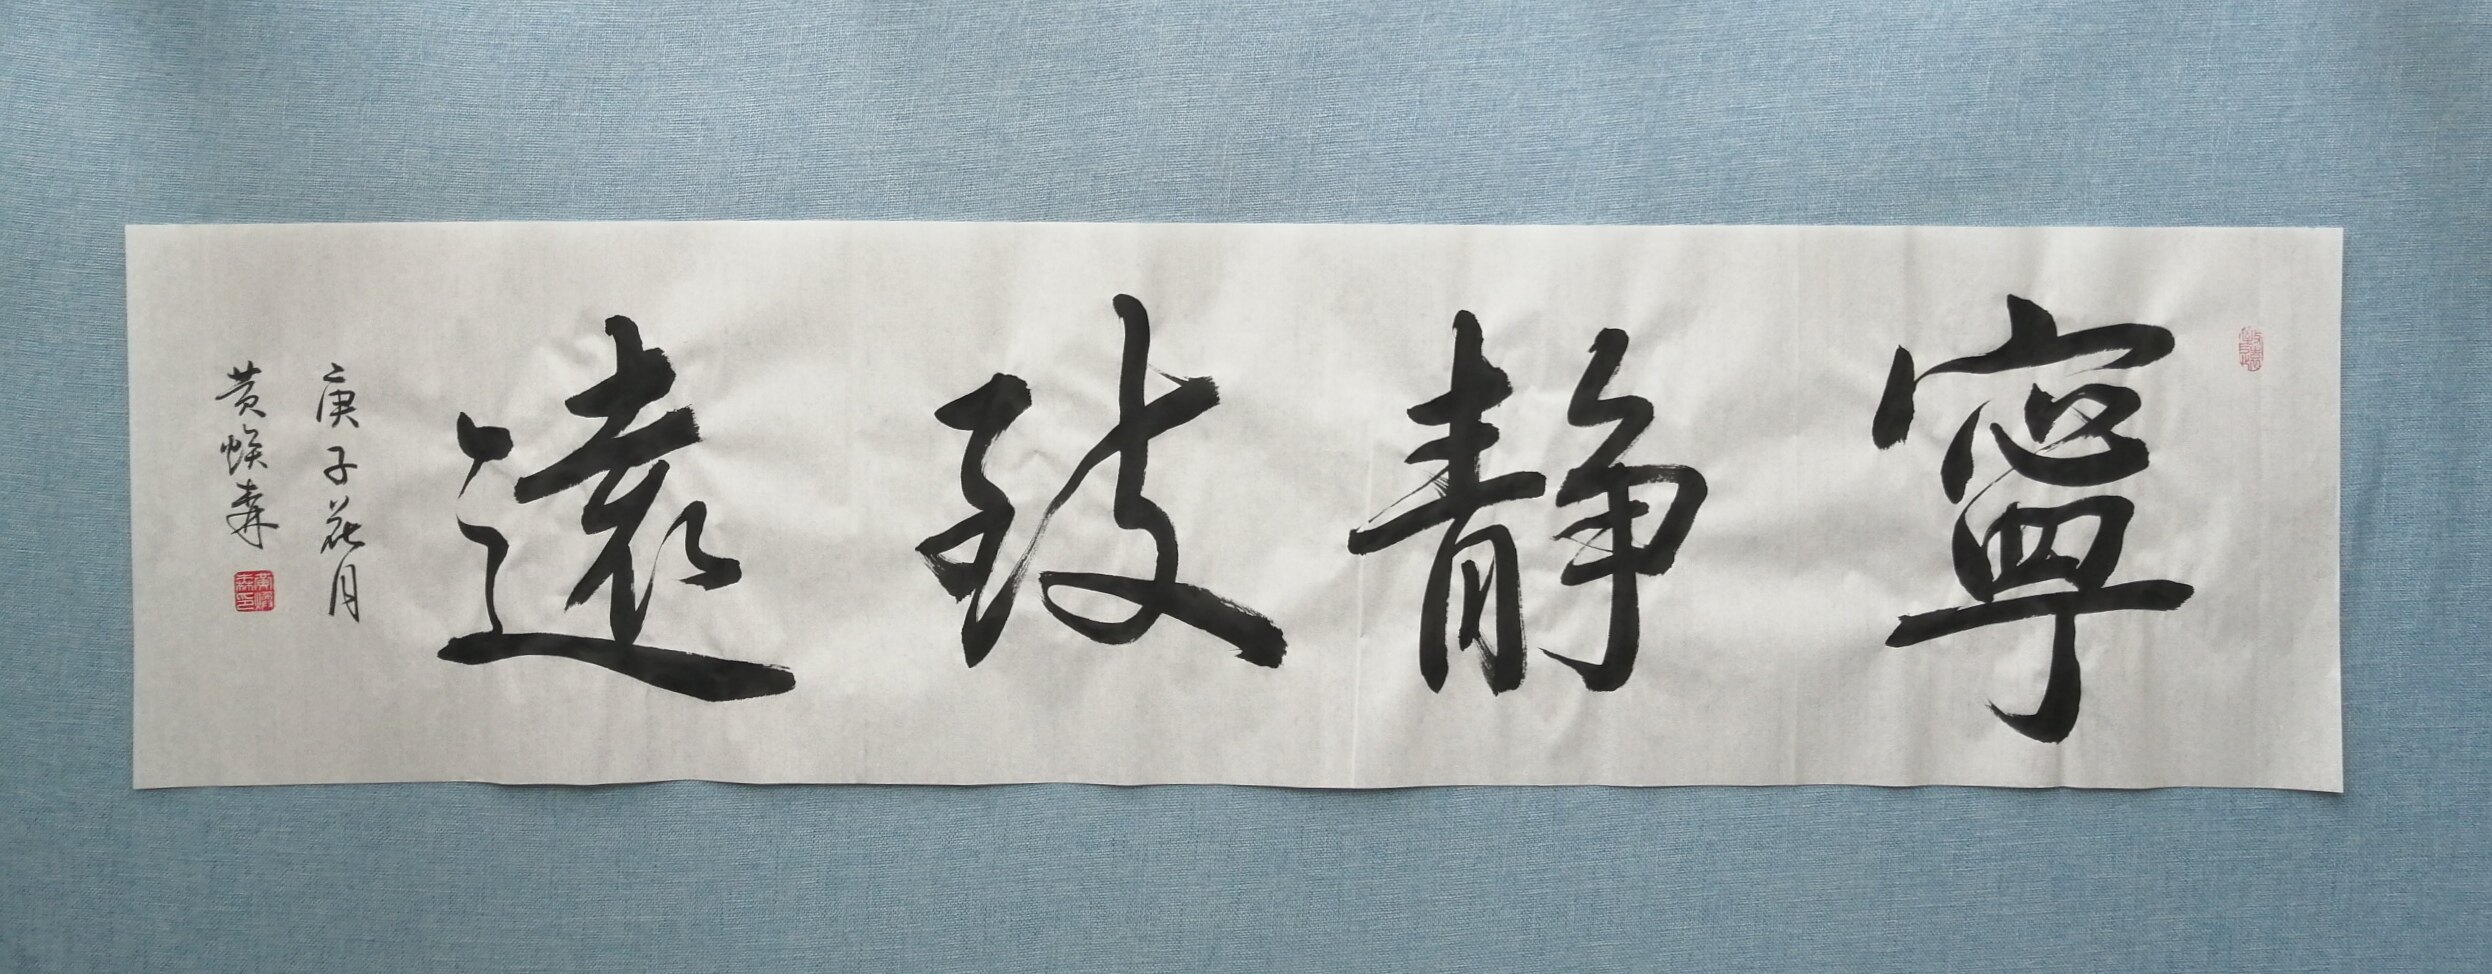 寧靜致遠
庚子花月
黄焕森